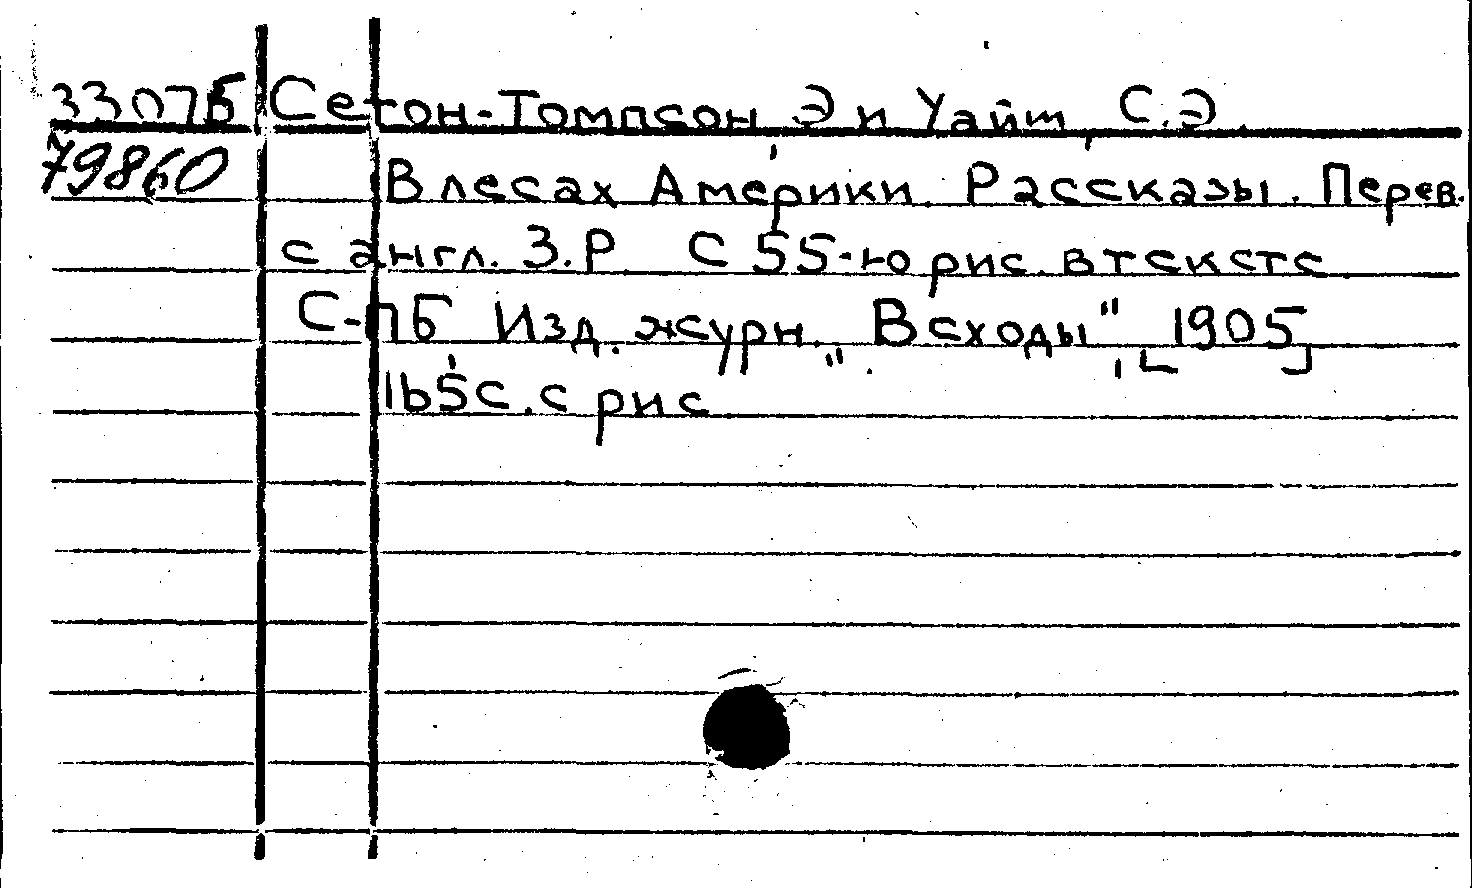 3307Б Сетон-Томпсон, Э и Уайт, С.Э.
79860 В лесах Америки. Рассказы. Перев.
с англ. З.Р. С 55-ю рис. в тексте.
С-ПБ, Изд. журн. „Всходы", [1905]
165с. с рис.